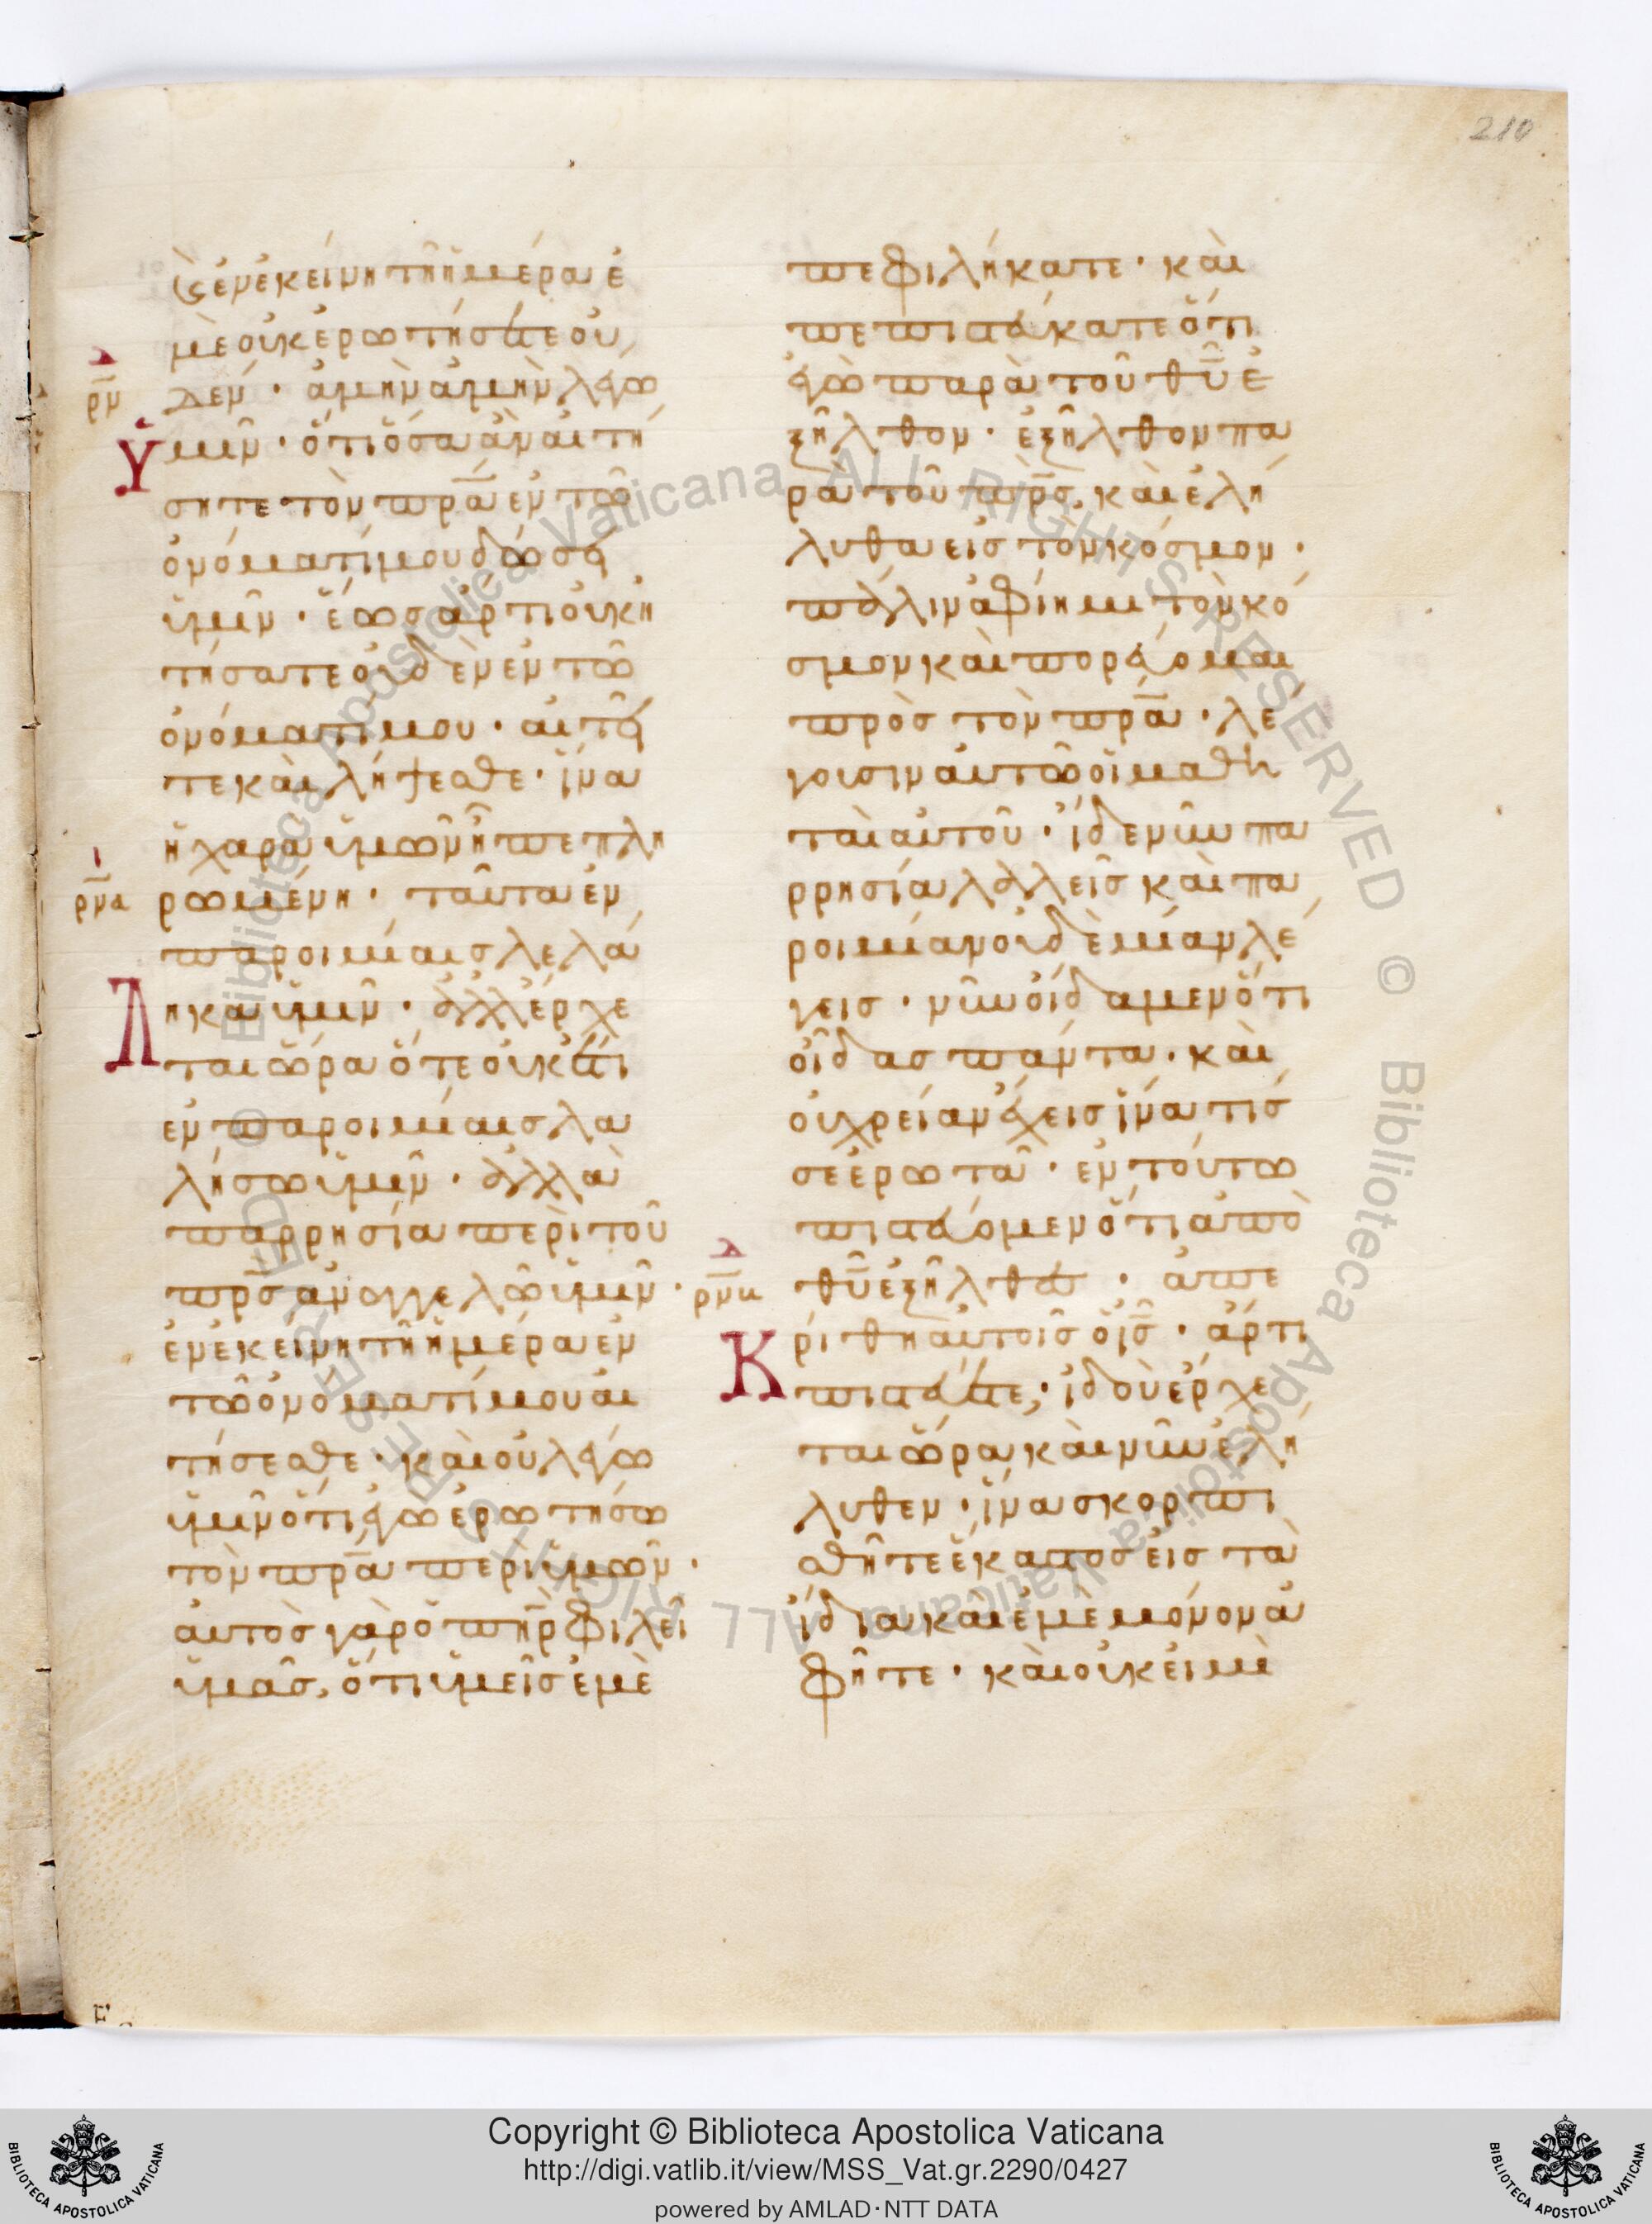 210
Ϗ ἐν ἐκείνη τῆ ἡμέρα ἐ
μὲ οὐκ ἐρωτήσετε οὐ
δέν · ἀμὴν ἀμὴν λέγω
ρν
ὑμῖν · ὅτι ὅσα ἂν αἰτή
σητε τὸν πρ̅α ἐν τῶ
ὀνόματί μου δώσει
ὑμῖν · ἕως ἄρτι οὐκ ἠ
τήσατε οὐδὲν ἐν τῶ
ὀνόματί μου · αἰτεῖ
τε καὶ λήψεσθε · ἵνα
ἡ χαρὰ ὑμῶν ἦ πεπλη
ρωμένη · ταῦτα ἐν
ρνα
παροιμίαις λελά
ληκα ὑμῖν · ἀλλ' ἔρχε
ται ὥρα ὅτε οὐκέτι
ἐν παροιμίαις λα
λήσω ὑμῖν · ἀλλὰ
παρρησία περὶ τοῦ
πρ̅σ ἀναγγελῶ ὑμῖν ·
ἐν ἐκείνη τῆ ἡμέρα ἐν
τῶ ὀνόματί μου αἰ
τήσεσθε · καὶ οὐ λέγω
ὑμῖν ὅτι ἐγὼ ἐρωτήσω
τὸν πρ̅α περὶ ὑμῶν ·
αὐτὸς γὰρ ὁ πη̅ρ φιλεῖ
ὑμᾶς, ὅτι ὑμεῖς ἐμὲ
πεφιλήκατε · καὶ
πεπιστεύκατε ὅτι
ἐγὼ παρὰ τοῦ θ̅υ ἐ
ξῆλθον · ἐξῆλθον πα
ρὰ τοῦ πρ̅σ, καὶ ἐλή
λυθα εἰς τὸν κόσμον ·
πάλιν ἀφίημι τὸν κό
σμον καὶ πορεύομαι
πρὸς τὸν πρ̅α · λέ
γουσιν αὐτῶ οἱ μαθη
ταὶ αὐτοῦ · ἴδε νῦν πα
ρρησία λαλεῖς καὶ πα
ροιμίαν οὐδεμίαν λέ
γεις · νῦν οἴδαμεν ὅτι
οἶδας πάντα · καὶ
οὐ χρείαν ἔχεις ἵνα τίς
σε ἐρωτᾶ · ἐν τούτω
πιστεύομεν ὅτι ἀπὸ
θ̅υ ἐξῆλθες · ἀπε
ρνβ
κρίθη αὐτοῖς ὁ ι̅ς · ἄρτι
πιστεύετε; · ἰδοὺ ἔρχε
ται ὥρα καὶ νῦν ἐλή
λυθεν · ἵνα σκορπι
σθῆτε ἕκαστος εἰς τὰ
ἴδια καὶ ἐμὲ μόνον ἀ
φῆτε · καὶ οὐκ εἰμὶ
© Biblioteca Apostolica Vaticana ALL RIGHTS RESERVED
Copyright © Biblioteca Apostolica Vaticana
http://digi.vatlib.it/view/MSS_Vat.gr.2290/0427
powered by AMLAD·NTT DATA
BIBLIOTECA APOSTOLICA VATICANA
BIBLIOTECA APOSTOLICA VATICANA